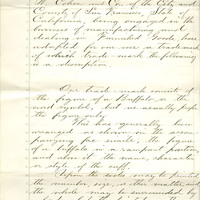 & Co. of the City and
County of San Francisco, State of
California, being engaged in the
business of manufacturing and
dealing in Furnished Goods, have
adopted for our use a trade mark
of which trade mark the following
is a description
Our trade mark consists of
the figure of a Buffalo, a
and symbol, but we usually
the figure only
This has generally been
arranged as shown on the accom
panying fac simile, the figure
of a buffalo in a rampant position,
and above it the name, character
or style of the
Upon the sides may be printed
the number, size, or other matter, and
the whole may be surrounded by